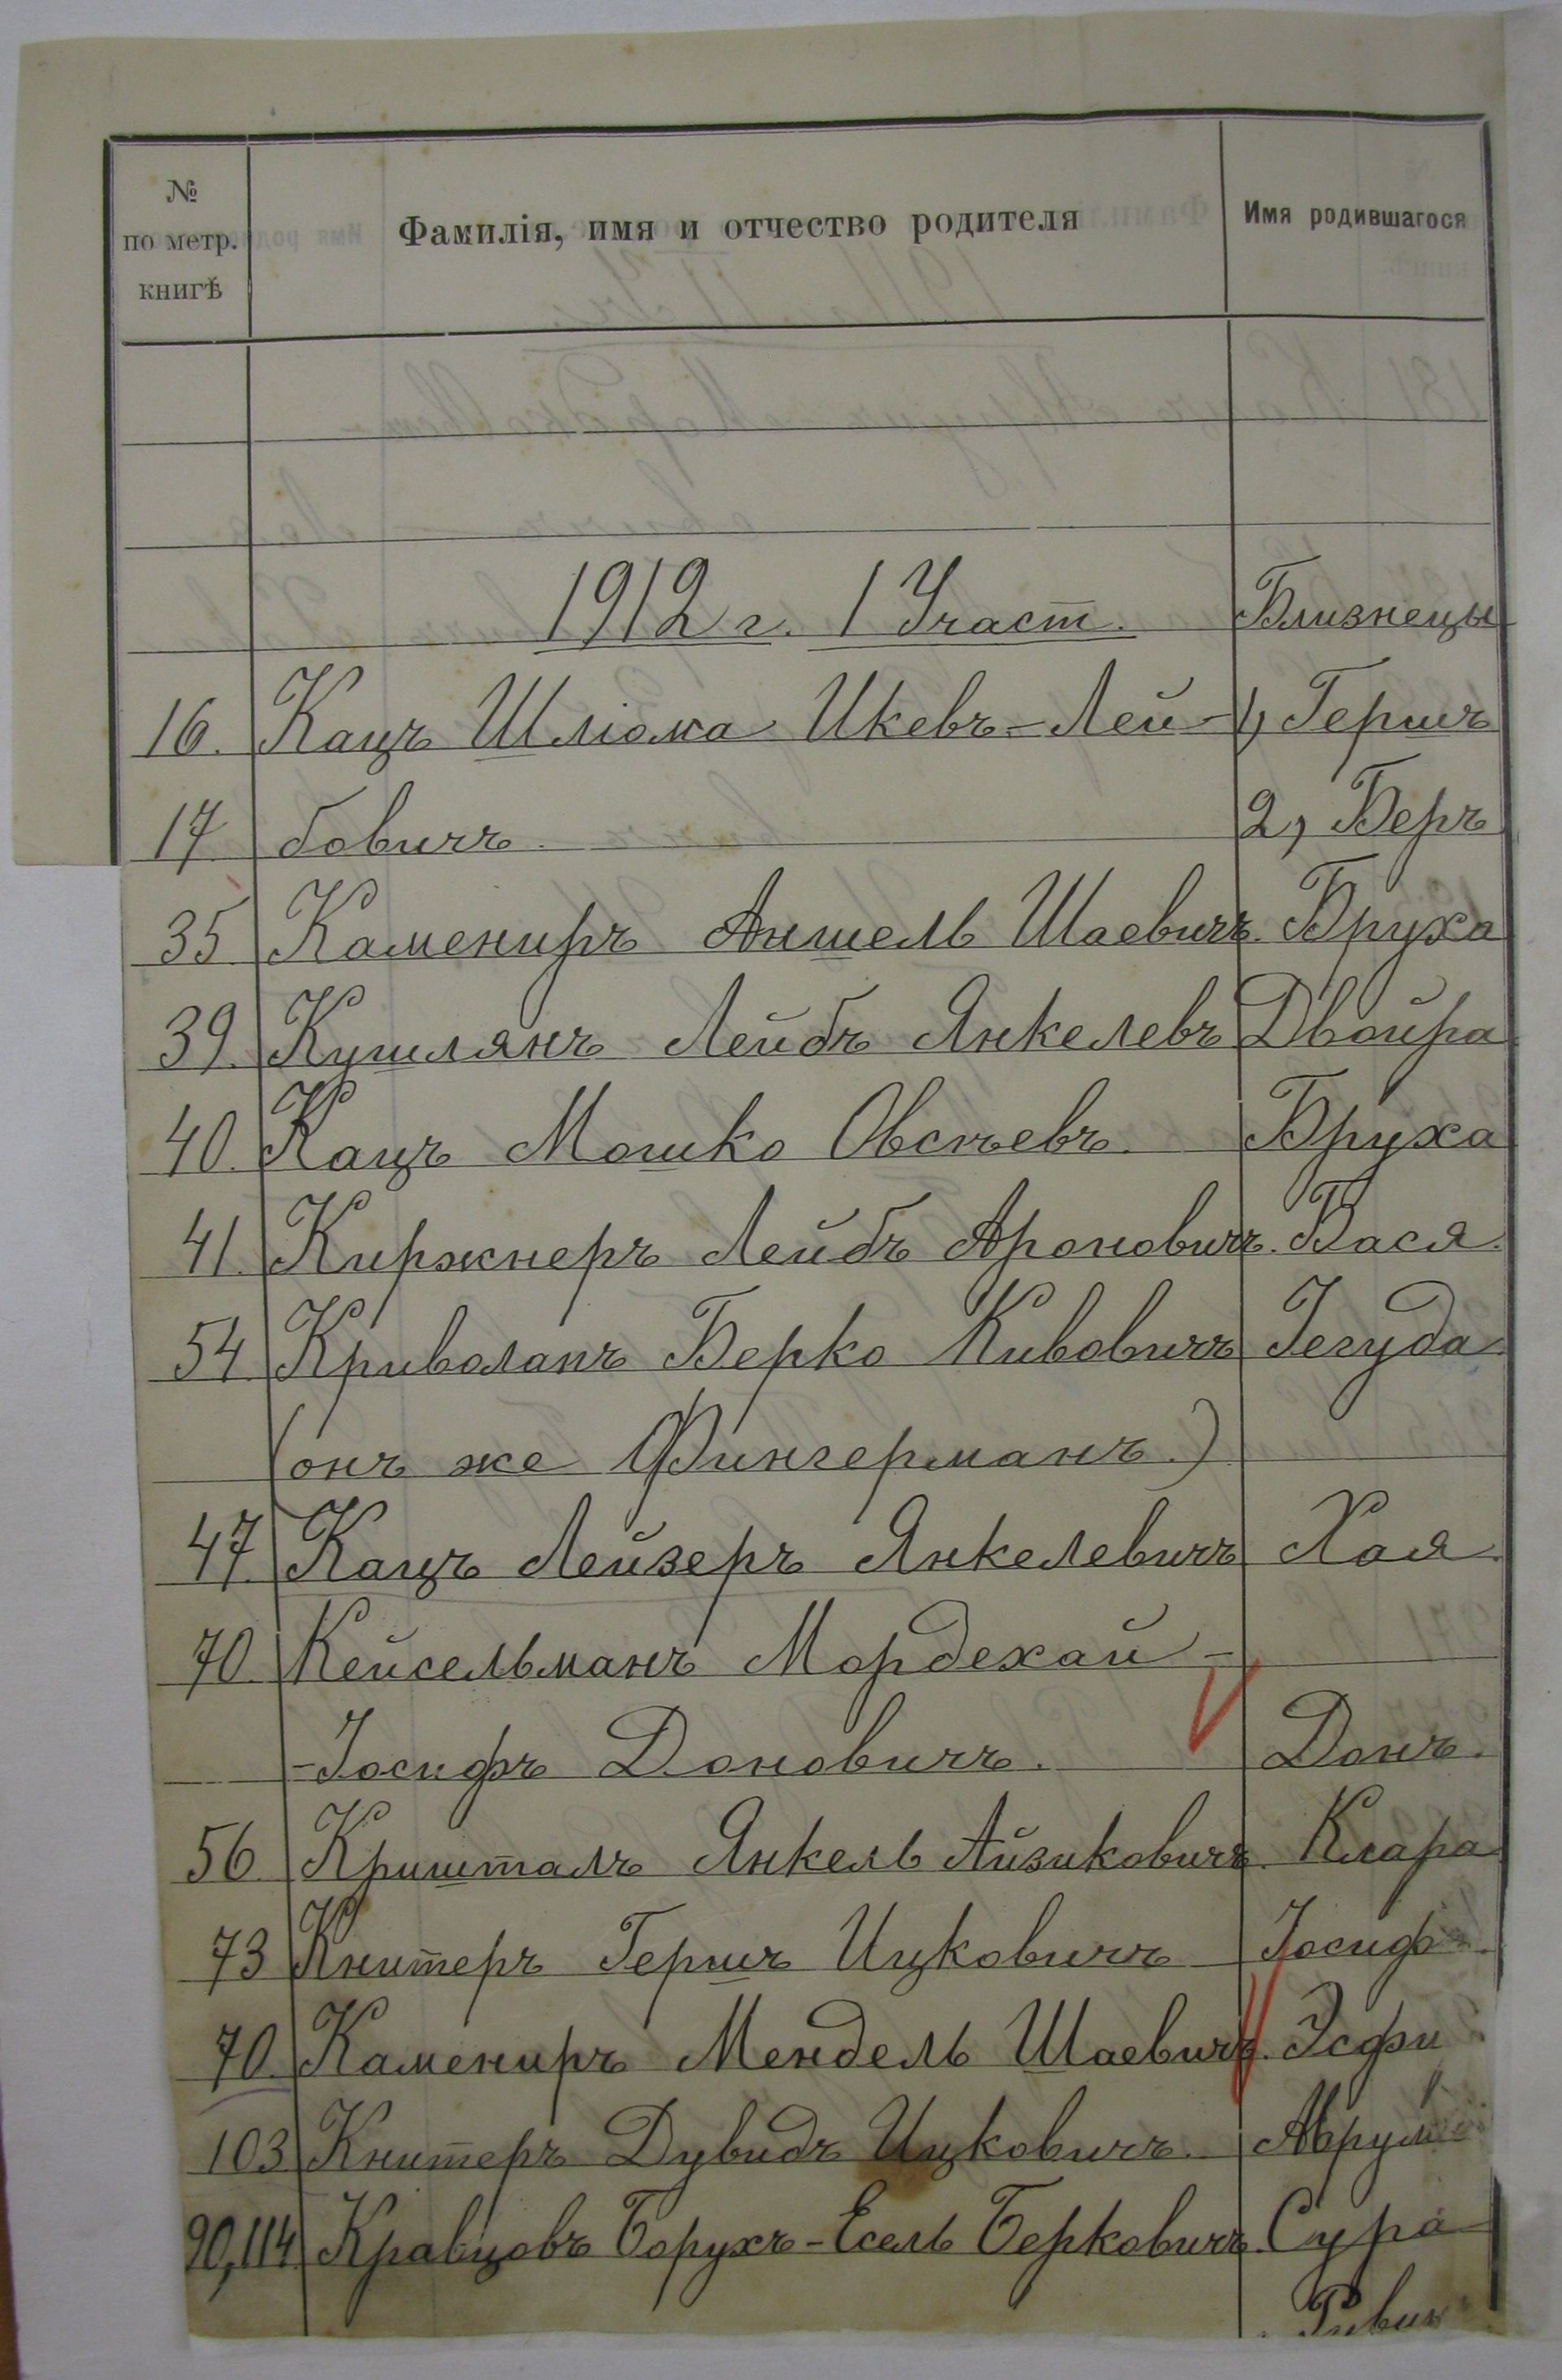 № по метр. книгѣ | Фамилія, имя и отчество родителя | Имя родившагося
1912 г. 1 Участ. Близнецы
16. Кацъ Шліома Икевъ-Лей- 1) Гершъ
17 бовичъ. 2) Беръ
35 Камениръ Аншель Шаевичъ. Бруха
39. Кушлянъ Лейбъ Янкелевъ Двойра
40. Кацъ Мошко Овсѣевъ. Бруха
41. Киржнеръ Лейбъ Ароновичъ. Бася.
54 Криволапъ Берко Кивовичъ Іегуда
(онъ же Фингерманъ.)
47. Кацъ Лейзеръ Янкелевичъ Хая.
70. Кейсельманъ Мордехай-
-Іосифъ Доновичъ. Донъ.
56. Кришталъ Янкель Айзиковичъ. Клара
73 Книтеръ Гершъ Ицковичъ Іосифъ.
70. Камениръ Мендель Шаевичъ. Эсфи
103 Книтеръ Дувидъ Ицковичъ. Аврум
90,114. Кравцовъ Борухъ-Есель Берковичъ. Сура